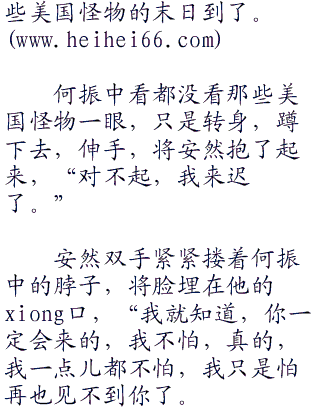 些美国怪物的末日到了。
(www.heihei66.com)
何振中看都没看那些美
国怪物一眼，只是转身，蹲
下去，伸手，将安然抱了起
来，“对不起，我来迟
了。”
安然双手紧紧搂着何振
中的脖子，将脸埋在他的
xiong口，“我就知道，你一
定会来的，我不怕，真的，
我一点儿都不怕，我只是怕
再也见不到你了。